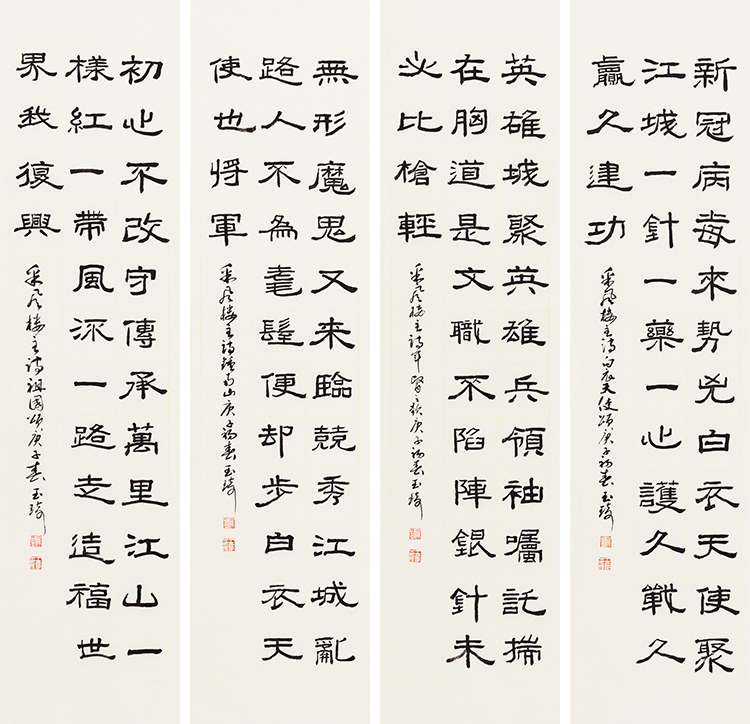 新冠病毒來勢兇白衣天使聚
江城一針一藥一心護久戰久
贏久建功
采風樓主詩白衣天使頌庚子初春玉琦
英雄城聚英雄兵領袖囑託揣
在胸道是文職不陷陣銀針未
必比槍輕
采風樓主詩軍醫頌庚子初春玉琦
無形魔鬼又来臨競秀江城亂
路人不為耄髦便却步白衣天
使也將軍
采風樓主詩鍾南山庚子初春玉琦
初心不改守傳承萬里江山一
樣紅一帶風流一路走造福世
界我復興
采風樓主詩祖國頌庚子春玉琦